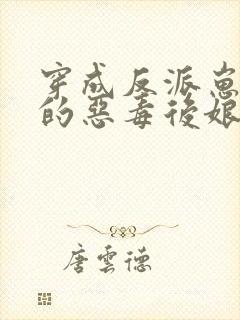 穿成反派崽
的惡毒後娘
唐雲德